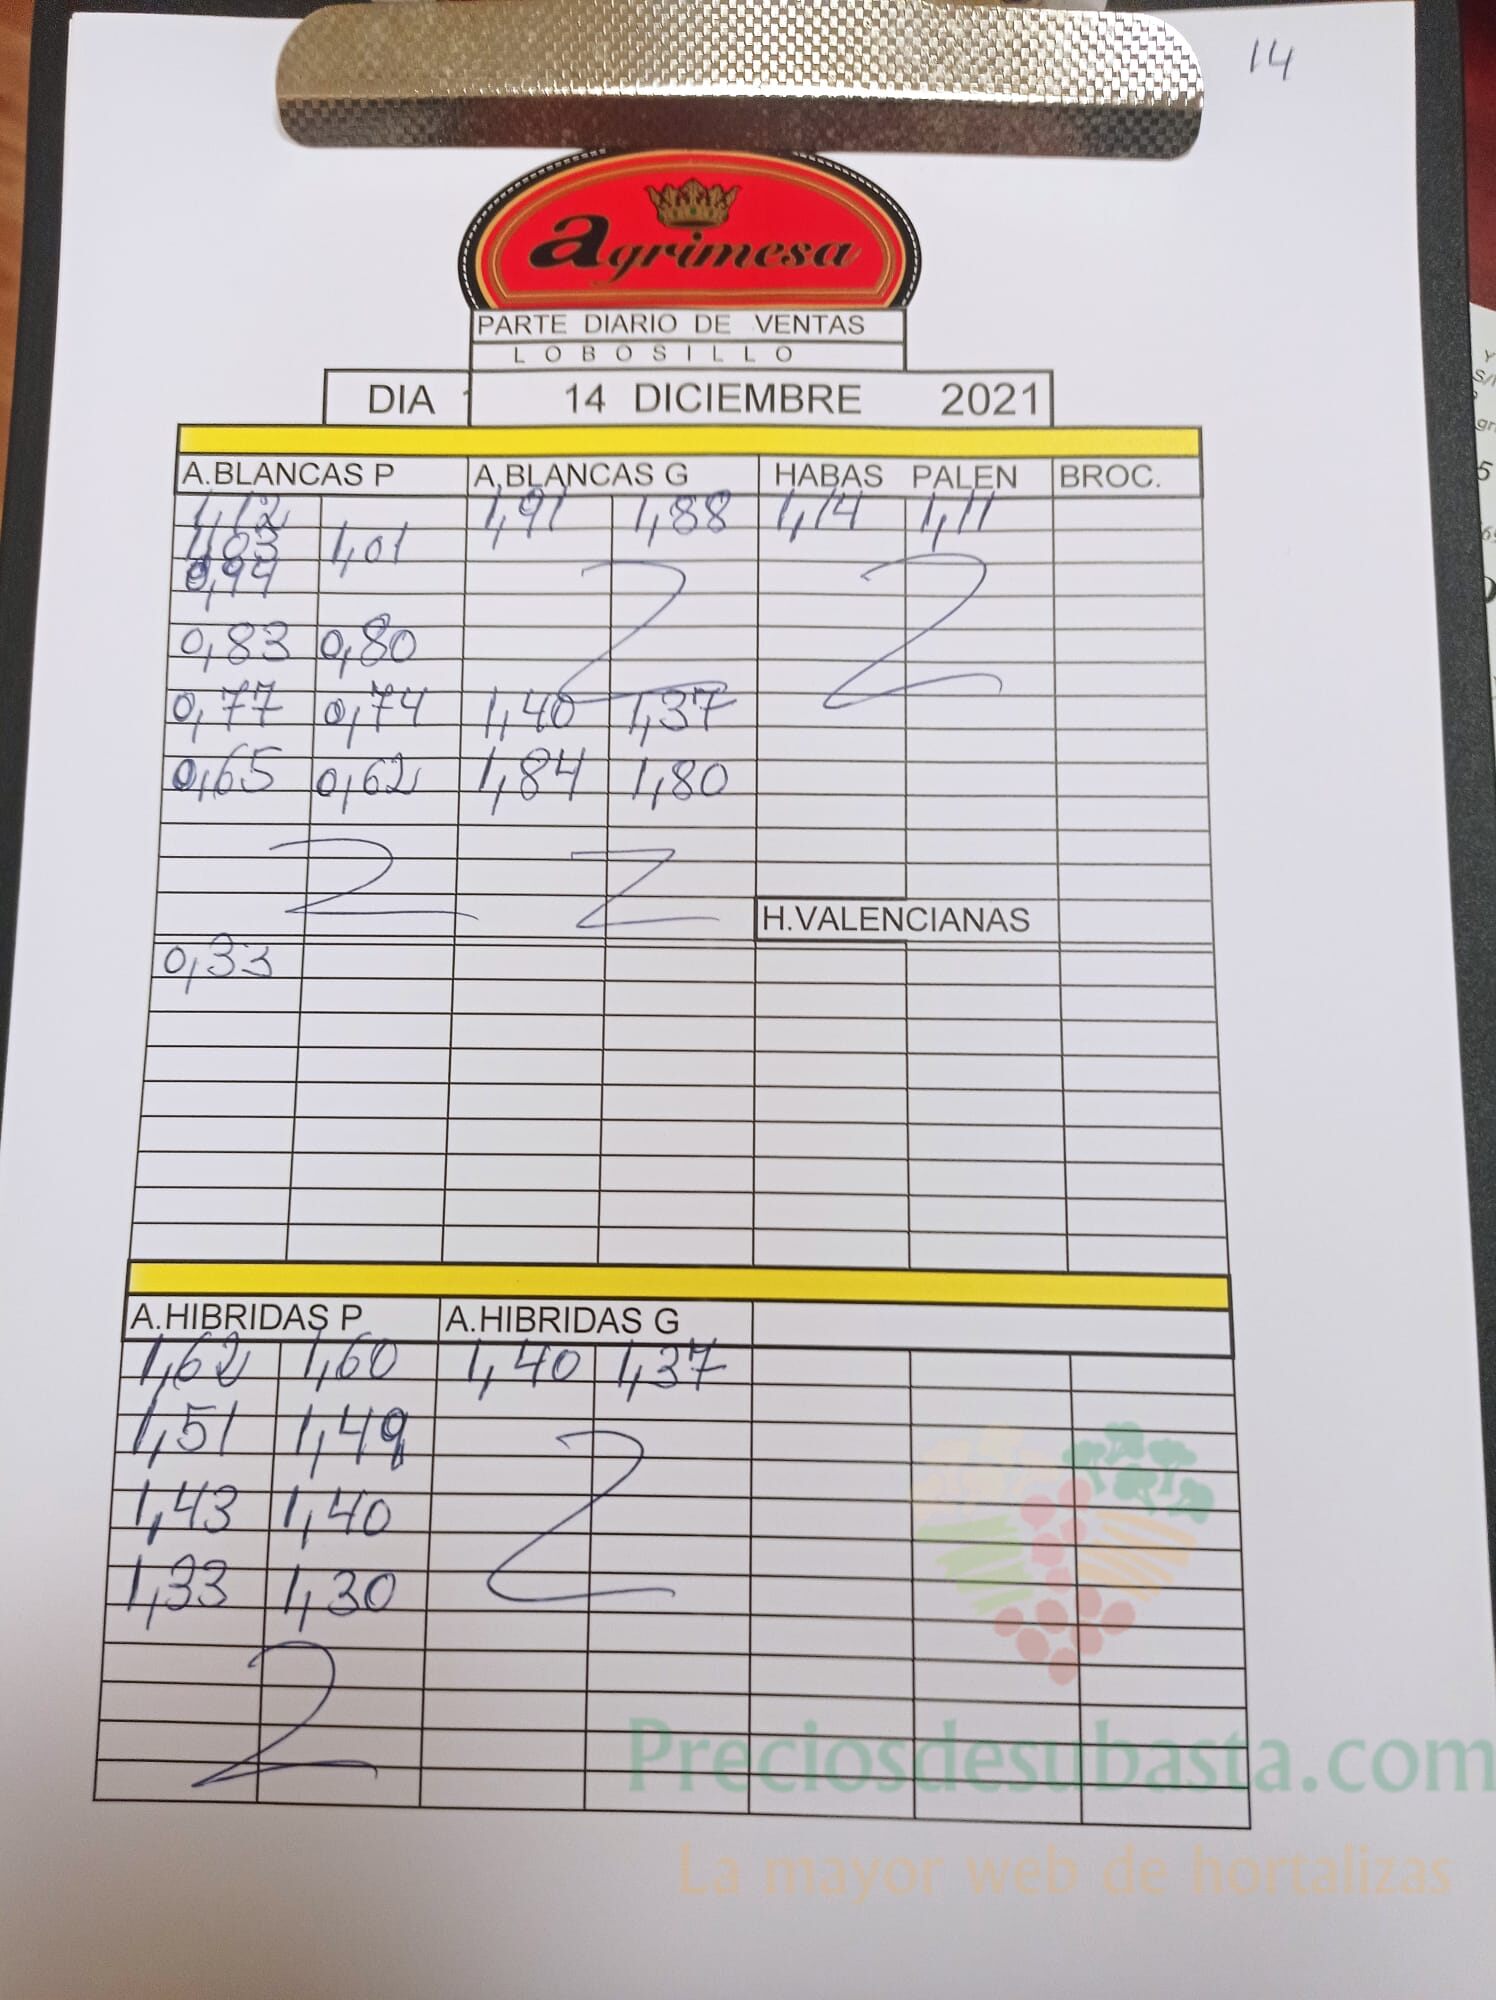 14
agrimesa
PARTE DIARIO DE VENTAS
LOBOSILLO
DIA 14 DICIEMBRE 2021
A.BLANCAS P A,BLANCAS G HABAS PALEN BROC.
1,12 1,91 1,88 1,14 1,11
1,03 1,01
0,94
0,83 0,80
0,77 0,74 1,40 1,37
0,65 0,62 1,84 1,80
H.VALENCIANAS
0,33
A.HIBRIDAS P A.HIBRIDAS G
1,62 1,60 1,40 1,37
1,51 1,49
1,43 1,40
1,33 1,30
Preciosdesubasta.com
La mayor web de hortalizas